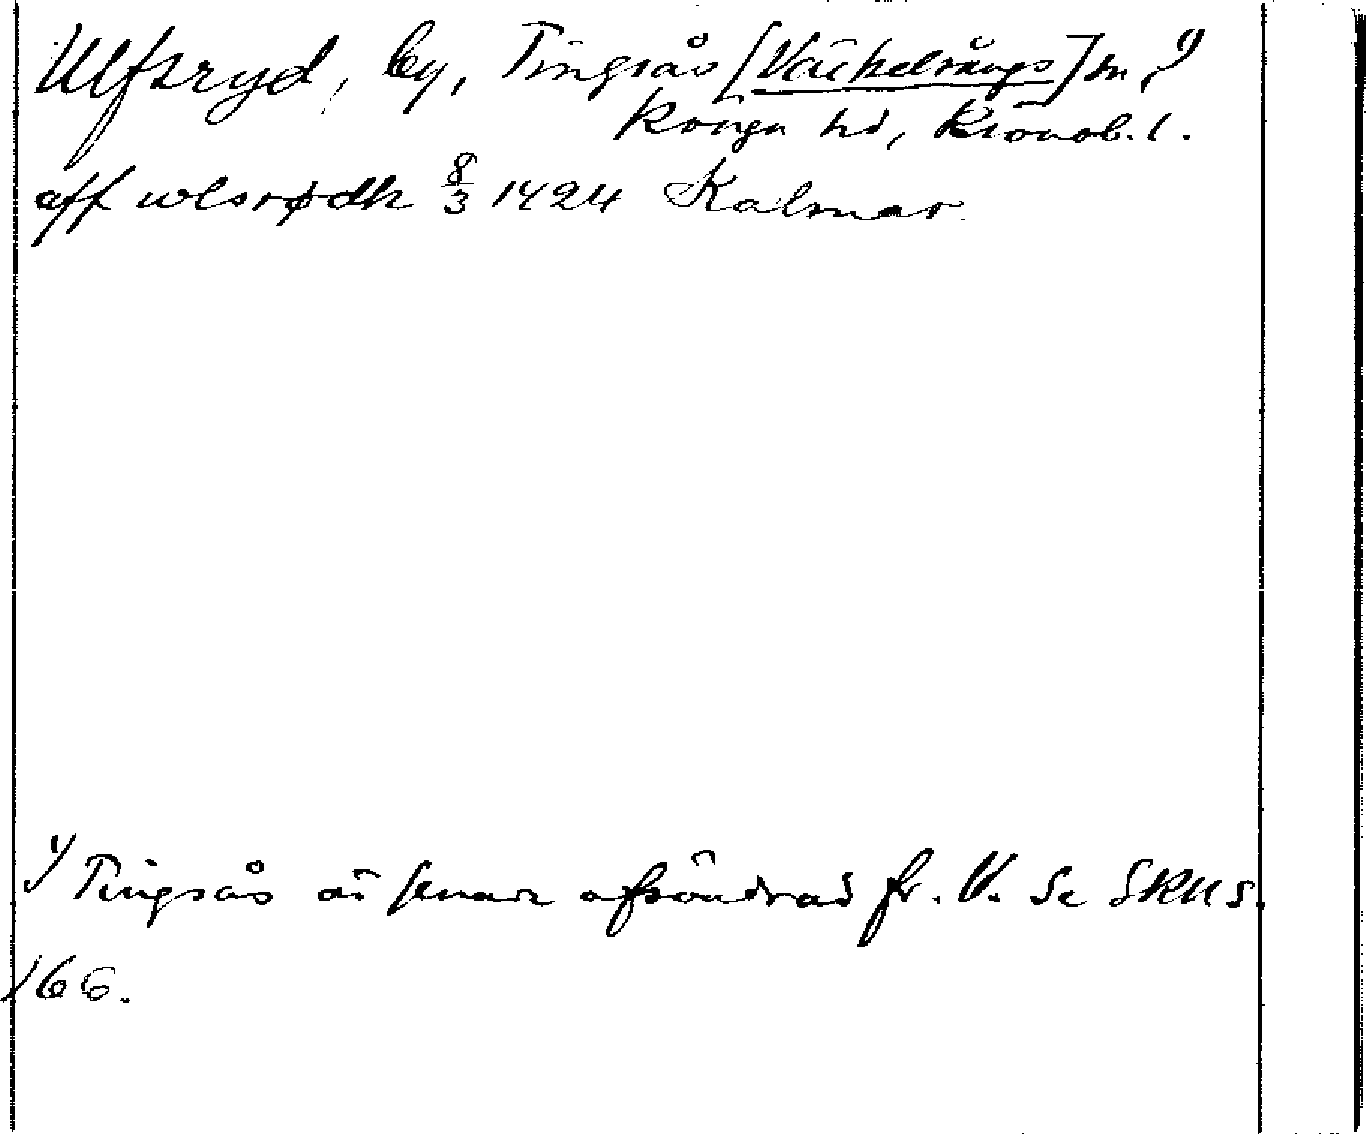 Ulfsryd, by, Tingsås [Väckelsångs] sn, 1)
Konga hd, Kronob. l.
aff wlsrødh 8/3 1424 Kalmar.
1) Tingsås är senare afsöndrad fr. V. Se SRU s.
166.